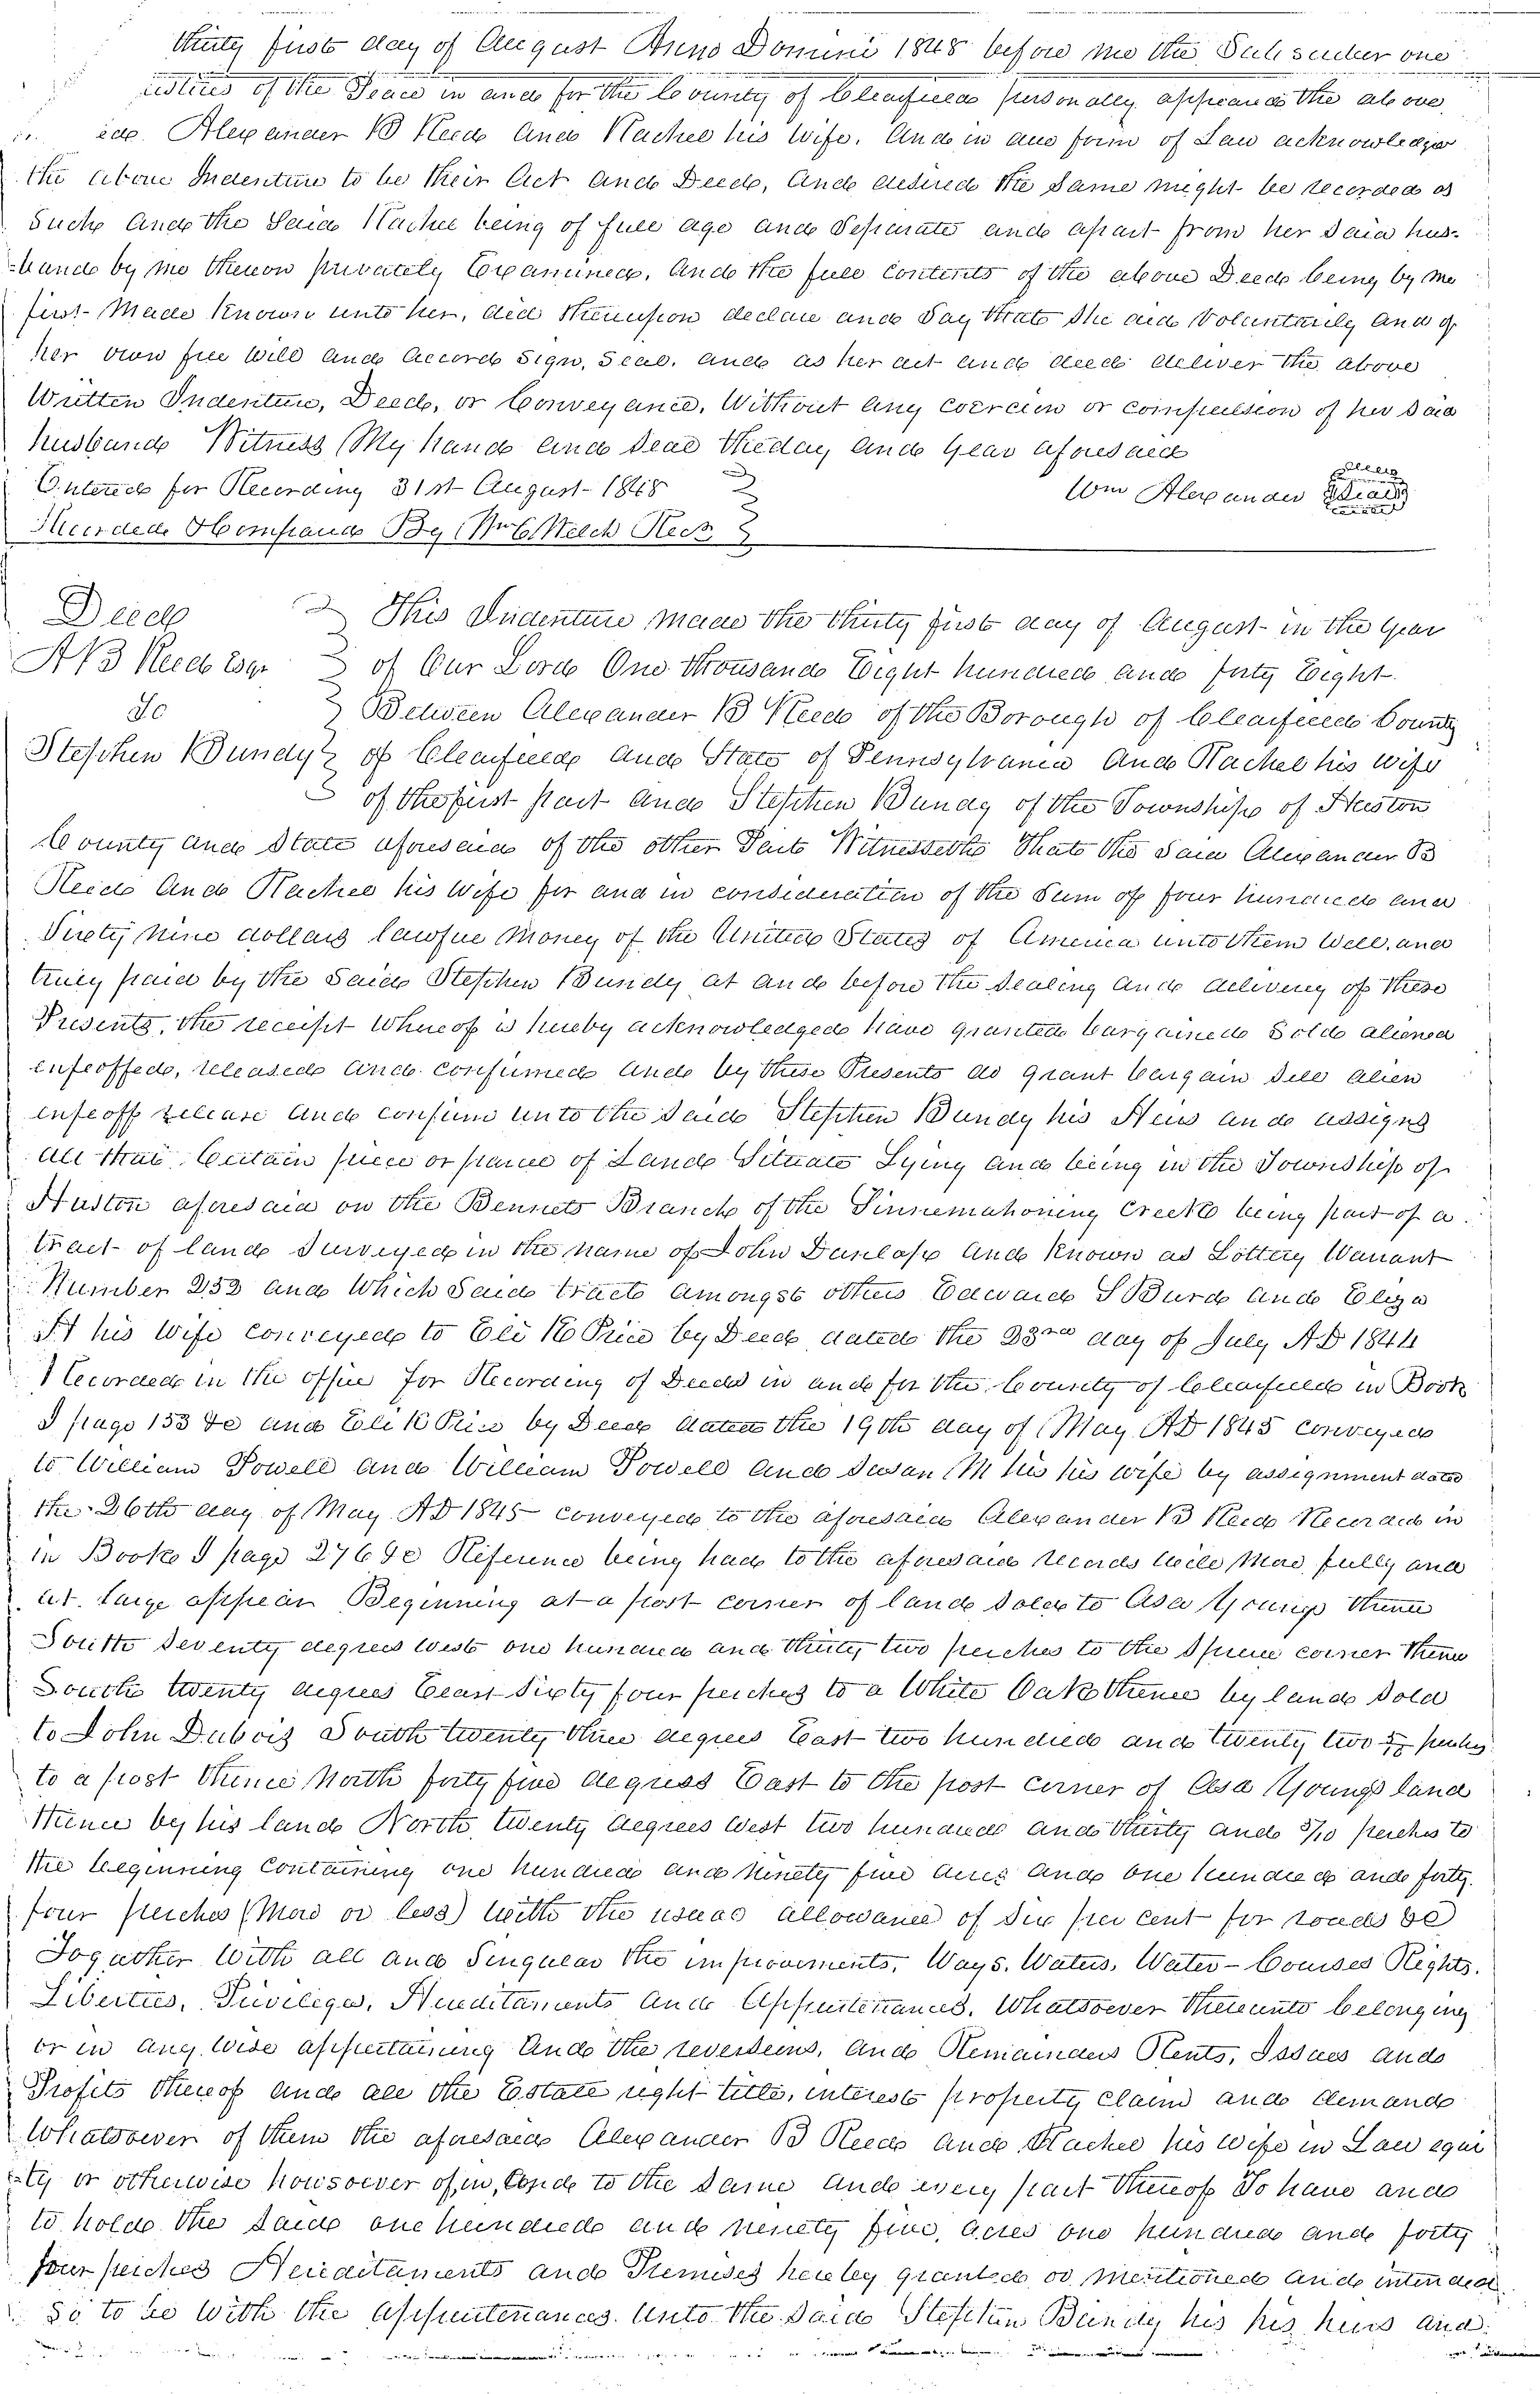 thirty first day of August Anno Domini 1848 before me the Subscriber one
ustices of the Peace in and for the County of Clearfield personally appeared the above
Alexander B Reed And Rachel his Wife. And in due form of Law acknowledged
the above Indenture to be their Act and Deed, And desired the Same might be recorded as
Such And the Said Rachel being of full age and Separate and apart from her Said hus-
-band by me thereon privately Examined. And the full Contents of the above Deed being by me
first Made Known unto her, did thereupon declare and Say that She did Voluntarily and of
her own free Will and Accord Sign, Seal, and as her act and deed deliver the above
Written Indenture, Deed, or Conveyance, Without Any Coercion or compulsion of her Said
husband Witness My hand and Seal the day and Year aforesaid
Entered for Recording 31st August 1848
Wm Alexander Seal
Recorded & Compared By Welch Recr
Deed
A B Reed Esqr
To
Stephen Bundy
This Indenture made the thirty first day of August in the Year
of Our Lord One thousand Eight hundred and forty Eight.
Between Alexander B Reed of the Borough of Clearfield County
of Clearfield And State of Pennsylvania And Rachel his wife
of the first part And Stephen Bundy of the Township of Huston
County and State aforesaid of the other Part Witnesseth That the Said Alexander B
Reed And Rachel his Wife for and in consideration of the Sum of four hundred and
Sixty nine dollars lawful Money of the United States of America unto them Well, and
truly paid by the Said Stephen Bundy at and before the Sealing and delivery of these
Presents, the receipt Whereof is hereby acknowledged have granted bargained Sold aliened
enfeoffed, released And confirmed And by these Presents do grant bargain Sell alien
enfeoff release And confirm unto the Said Stephen Bundy his Heirs and assigns
All that Certain piece or parcel of Land Situate Lying and being in the Township of
Huston aforesaid on the Bennets Branch of the Sinnemahoning Creek being part of a
tract of land Surveyed in the name of John Dunlap And Known as Lottery Warrant
Number 252 and Which Said tract Amongst others Edward S Burd and Eliza
H his Wife Conveyed to Eli K Price by Deed dated the 23rd day of July AD 1844
Recorded in the office for Recording of Deeds in and for the County of Clearfield in Book
I page 153 &c and Eli K Price by Deed dated the 19th day of May AD 1845 conveyed
to William Powell and William Powell and Susan M his his wife by assignment dated
the 26th day of May AD 1845 conveyed to the aforesaid Alexander B Reed Recorded in
in Book I page 276 &c Reference being had to the aforesaid records Will More fully and
at large appear Beginning at a post corner of land Sold to Asa Young thence
South Seventy degrees West one hundred and thirty two perches to the Spruce corner thence
South twenty degrees East Sixty four perches to a White Oak thence by land Sold
to John Dubois South twenty three degrees East two hundred and twenty two perches
to a post thence North forty five degrees East to the post corner of Asa Youngs land
thence by his land North twenty degrees West two hundred and thirty and 5/10 perches to
the beginning Containing one hundred and ninety five Acres and one hundred and forty
four perches (More or less) With the usual allowance of Six per cent for roads &c
Together With all and Singular the improvements, Ways. Waters, Water-Courses Rights.
Liberties, Privileges, Hereditaments And Appurtenances, Whatsoever thereunto belonging
or in any Wise appertaining And the reversions, And Remainders Rents, Issues and
Profits thereof and all the Estate right title, interest property claim and demand
Whatsoever of them the aforesaid Alexander B Reed And Rachel his Wife in Law equi
-ty or otherwise howsoever of, in, and to the Same And every part thereof To have and
to hold the Said one hundred and ninety five, Acres one hundred and forty
four perches Hereditaments and Premises hereby granted or mentioned and intended
So to be With the Appurtenances. Unto the Said Stephen Bundy his his heirs and